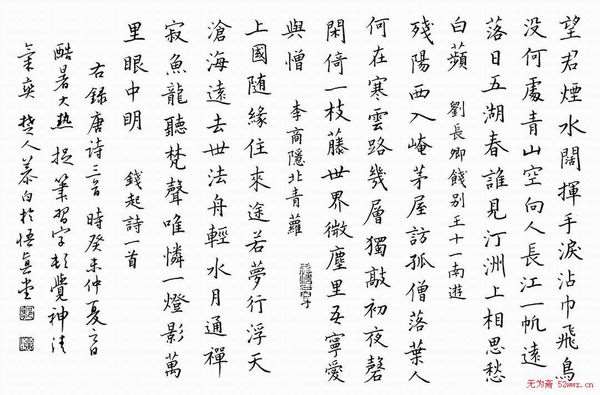 望君煙水闊揮手淚沾巾飛鳥
没何處青山空向人長江一帆遠
落日五湖春誰見汀洲上相思愁
白蘋 劉長卿餞别王十一南遊
殘陽西入崦茅屋訪孤僧落葉人
何在寒雲路幾層獨敲初夜磬
閑倚一枝藤世界微塵里吾寧愛
與憎 李商隱北青蘿
上國随緣住來途若夢行浮天
滄海遠去世法舟輕水月通禪
寂魚龍聽梵聲唯憐一燈影萬
里眼中明 錢起詩一首
右録唐詩三首時癸未仲夏日
酷暑大熱捉筆習字頓覺神清
氣爽 楚人慕白於悟真堂
无为斋 52wwz.cn